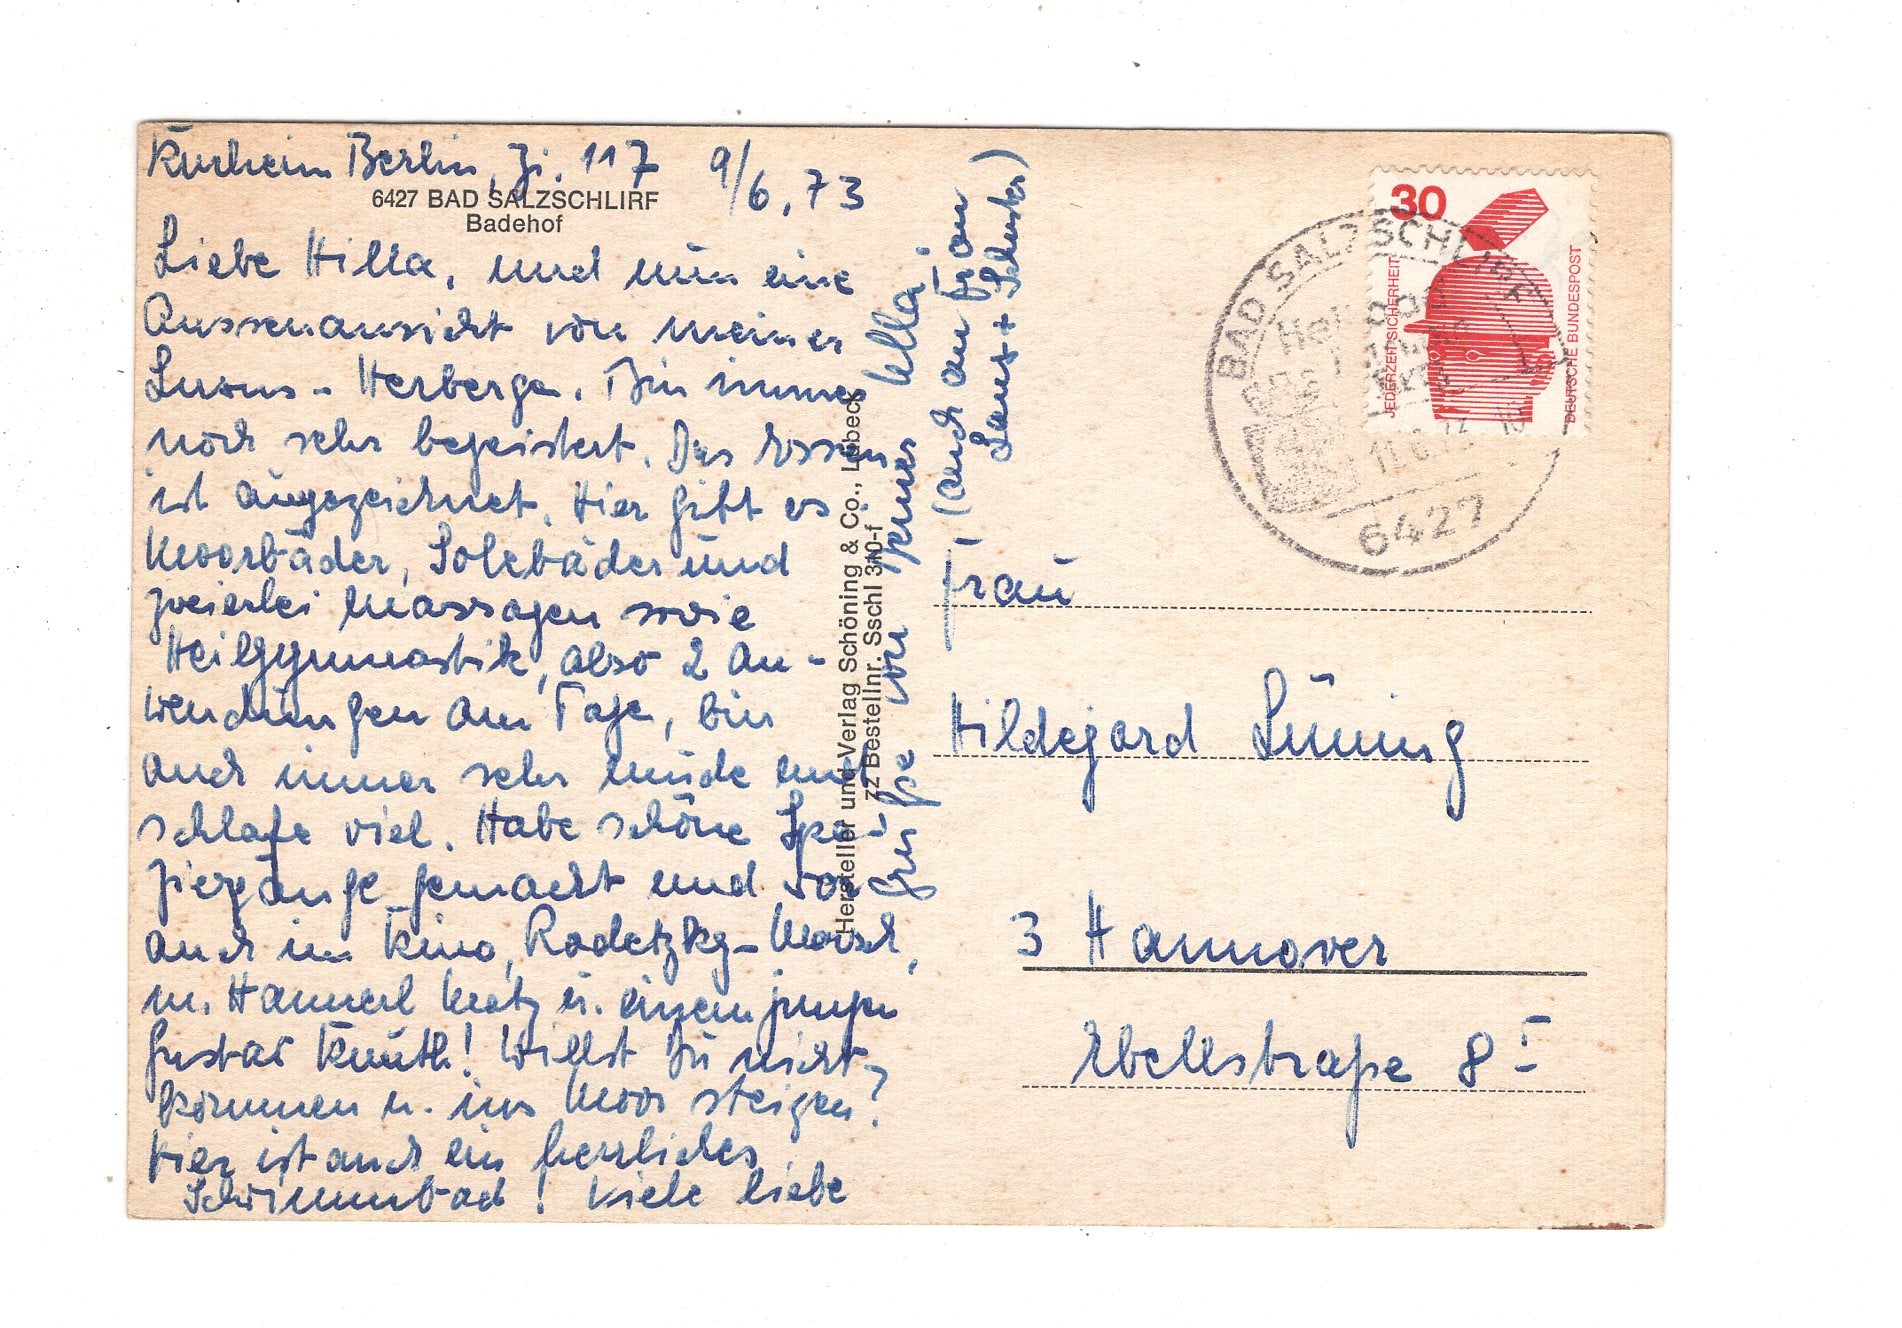 Kurheim Berlin, Zi. 117 9/6.73
6427 BAD SALZSCHLIRF
Badehof
Liebe Hilla, und nun eine
Aussenansicht von meiner
Luxus-Herberge. Bin immer
noch sehr begeistert. Das Essen
ist ausgezeichnet. Hier gibt es
Moorbäder, Solebäder und
zweierlei Massagen sowie
Heilgymnastik, also 2 An-
wendungen am Tage, bin
auch immer sehr müde und
schlafe viel. Habe schöne Spa-
ziergänge gemacht und war
auch im Kino, Radetzky-Marsch,
m. Hannerl Matz u. einem jungen
Gustav Knuth! Willst Du nicht
kommen u. ins Moor steigen?
Hier ist auch ein herrliches
Schwimmbad! Viele liebe
Grüße von Deiner Ulla!
(auch an Frau
Laus + Schuster)
Hersteller und Verlag Schöning & Co., Lübeck
zz Bestellnr. Sschl 310-f
30
JEDERZEIT SICHERHEIT
DEUTSCHE BUNDESPOST
BAD SALZSCHLIRF
11.6.73
6427
Frau
Hildegard Lüning
3 Hannover
Ebellstraße 8 I